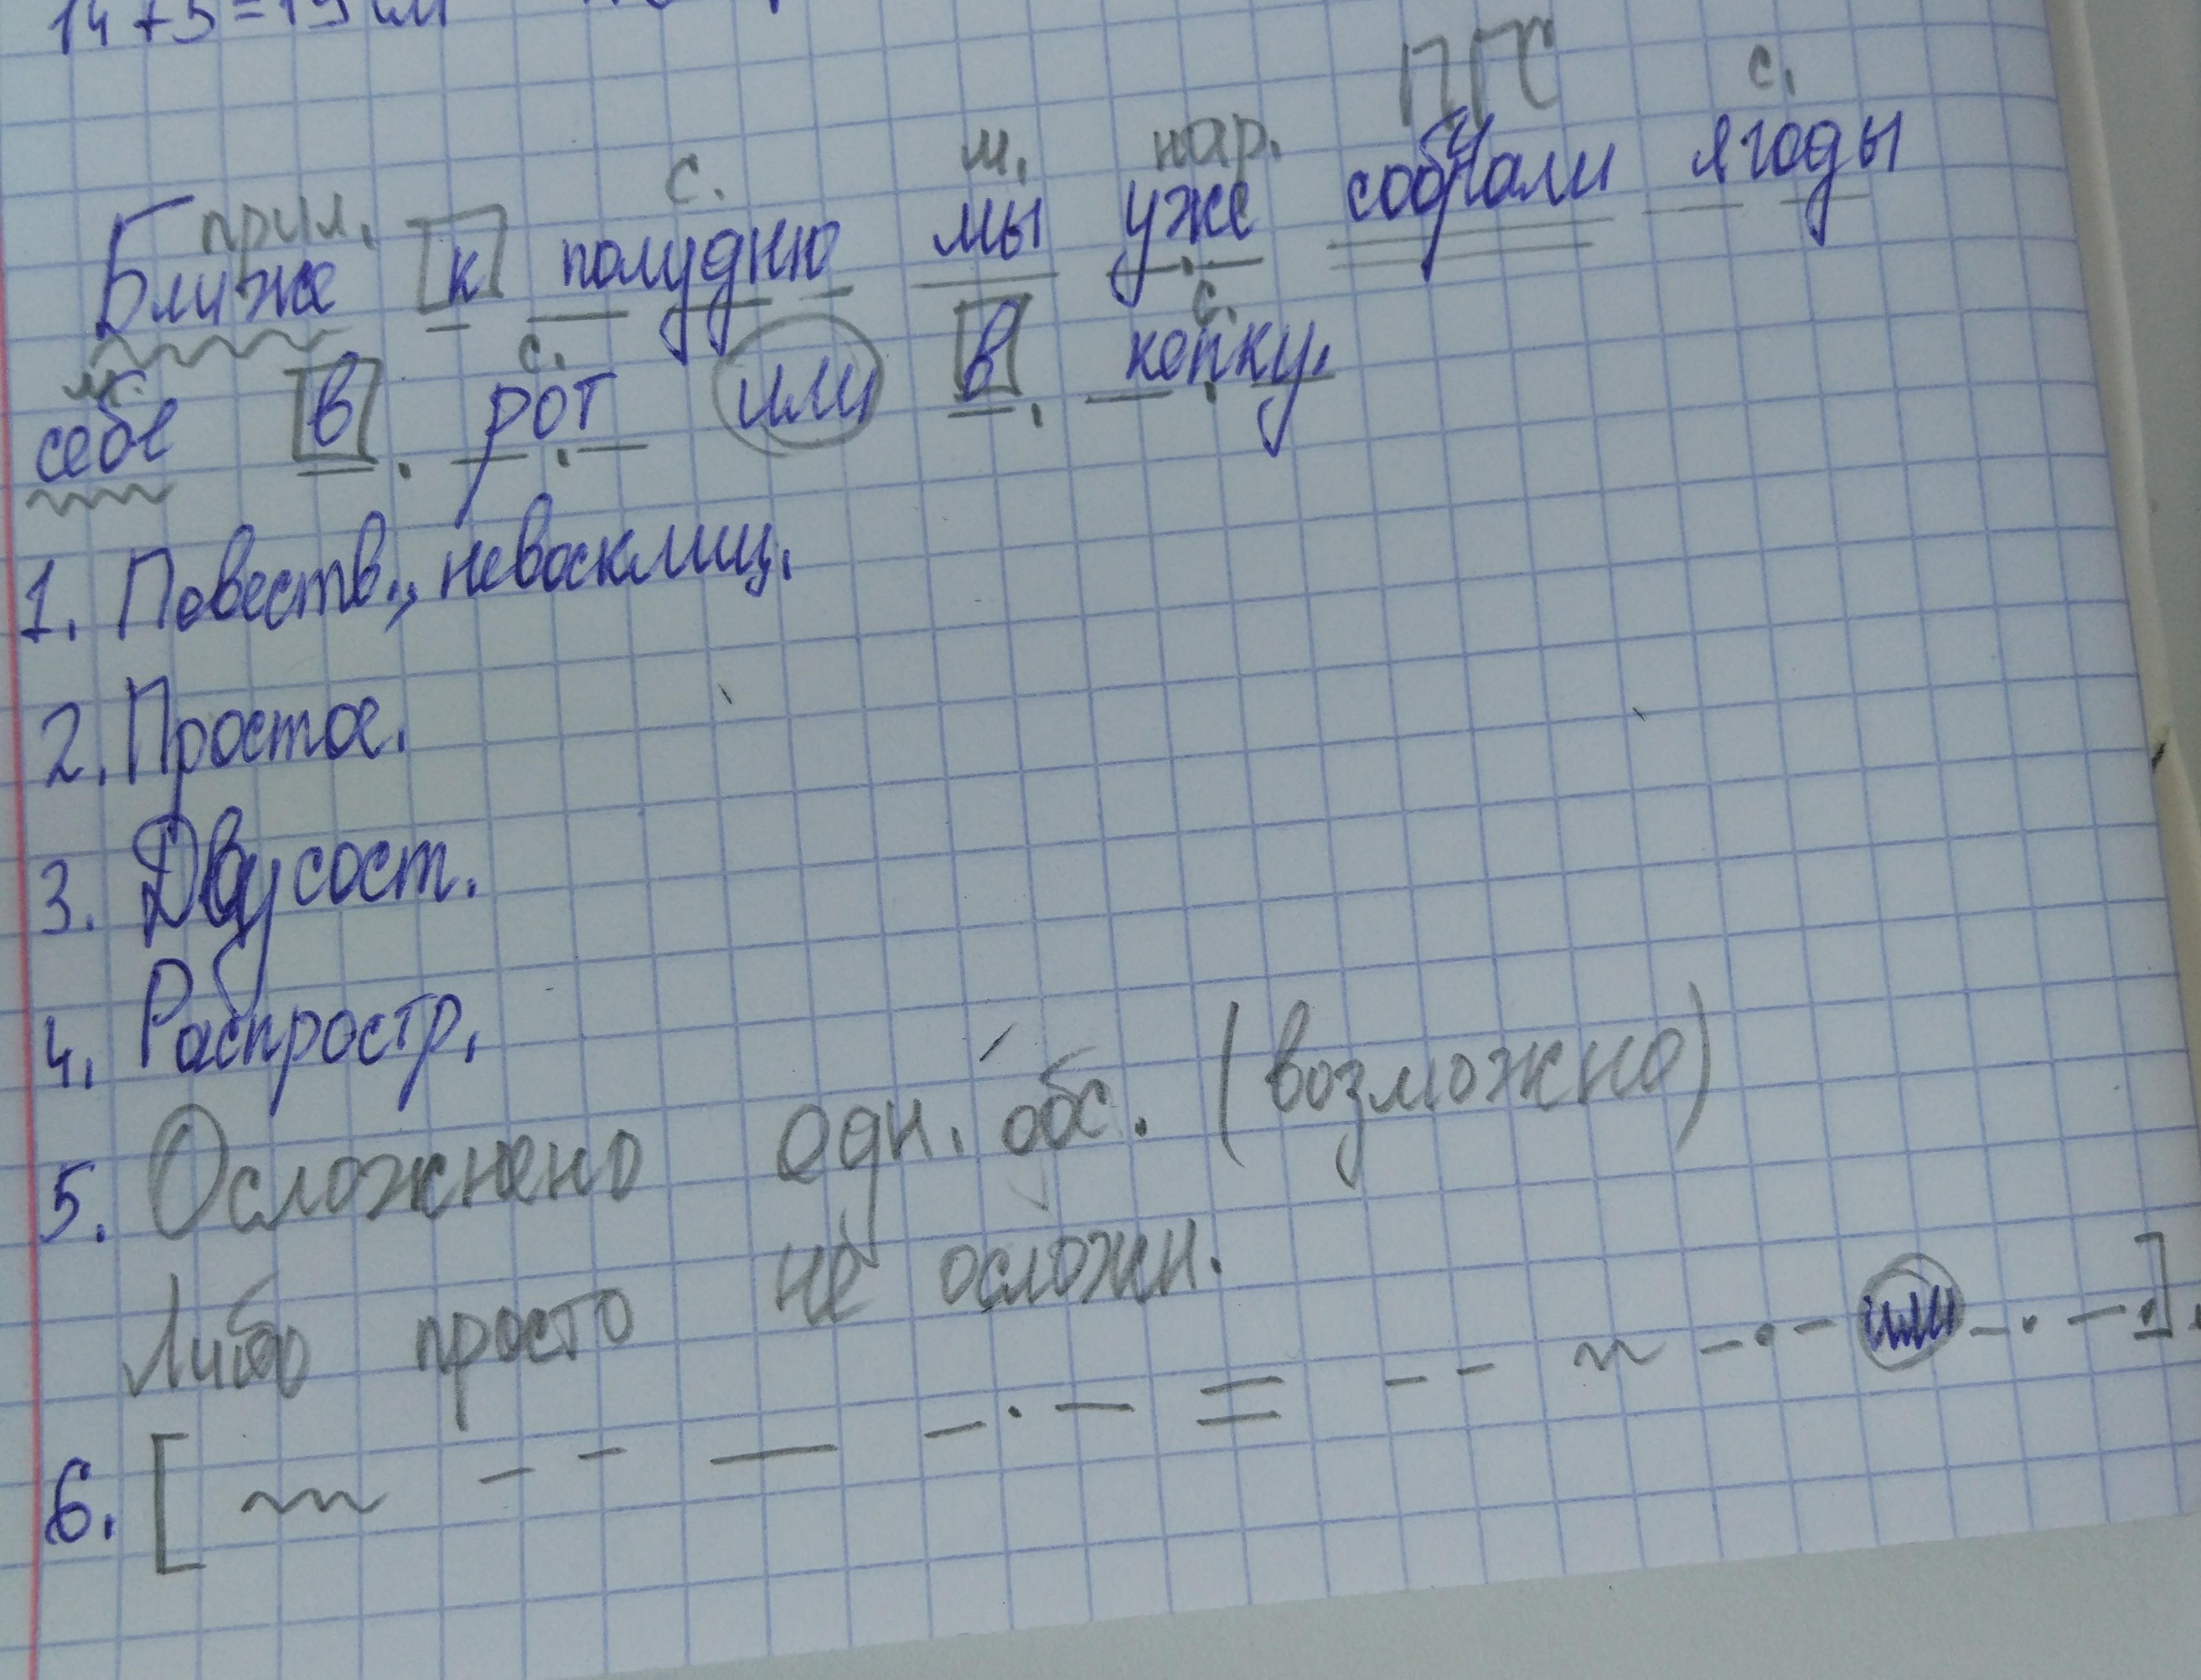 14+5=19 см
прил. с. м. нар. ПГС с.
Ближе к полудню мы уже собрали ягоды
м. с. с.
себе в рот или в кепку.
1. Повеств., невосклиц.
2. Простое.
3. Двусост.
4. Распростр.
5. Осложнено одн. обс. (возможно)
Либо просто не осложн.
6. [ или ].